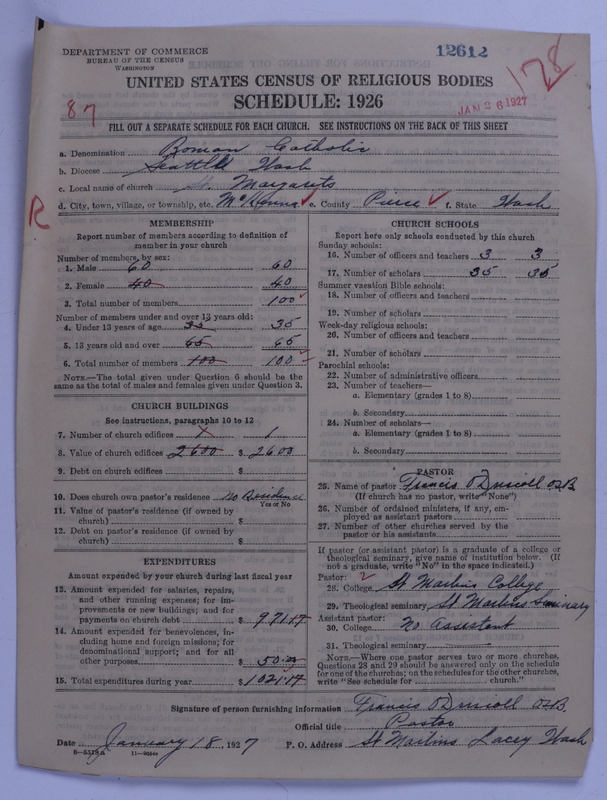 DEPARTMENT OF COMMERCE
BUREAU OF THE CENSUS
WASHINGTON
12612
178
87
JAN 26 1927
UNITED STATES CENSUS OF RELIGIOUS BODIES
SCHEDULE: 1926
FILL OUT A SEPARATE SCHEDULE FOR EACH CHURCH. SEE INSTRUCTIONS ON THE BACK OF THIS SHEET
a. Denomination Roman Catholic
b. Diocese Seattle Wash
c. Local name of church St. Margarets
d. City, town, village, or township, etc. McKenna e. County Pierce f. State Wash
R
MEMBERSHIP
Report number of members according to definition of
member in your church
Number of members, by sex:
1. Male 60 60
2. Female 40 40
3. Total number of members 100
Number of members under and over 13 years old:
4. Under 13 years of age 35 35
5. 13 years old and over 65 65
6. Total number of members 100 100
NOTE.—The total given under Question 6 should be the
same as the total of males and females given under Question 3.
CHURCH BUILDINGS
See instructions, paragraphs 10 to 12
7. Number of church edifices 1 1
8. Value of church edifices 2600 $ 2600
9. Debt on church edifices $
10. Does church own pastor's residence No Residence
Yes or No
11. Value of pastor's residence (if owned by
church) $
12. Debt on pastor's residence (if owned by
church) $
EXPENDITURES
Amount expended by your church during last fiscal year
13. Amount expended for salaries, repairs,
and other running expenses; for im-
provements or new buildings; and for
payments on church debt $ 971.17
14. Amount expended for benevolences, in-
cluding home and foreign missions; for
denominational support; and for all
other purposes $ 50.00
15. Total expenditures during year $ 1021.17
CHURCH SCHOOLS
Report here only schools conducted by this church
Sunday schools:
16. Number of officers and teachers 3 3
17. Number of scholars 35 35
Summer vacation Bible schools:
18. Number of officers and teachers
19. Number of scholars
Week-day religious schools:
20. Number of officers and teachers
21. Number of scholars
Parochial schools:
22. Number of administrative officers
23. Number of teachers—
a. Elementary (grades 1 to 8)
b. Secondary
24. Number of scholars—
a. Elementary (grades 1 to 8)
b. Secondary
PASTOR
25. Name of pastor Francis O'Driscoll O.S.B.
(If church has no pastor, write "None")
26. Number of ordained ministers, if any, em-
ployed as assistant pastors
27. Number of other churches served by the
pastor or his assistants
If pastor (or assistant pastor) is a graduate of a college or
theological seminary, give name of institution below. (If
not a graduate, write "No" in the space indicated.)
Pastor:
28. College St Martins College
29. Theological seminary St Martins Seminary
Assistant pastor:
30. College No assistant
31. Theological seminary
NOTE.—Where one pastor serves two or more churches,
Questions 28 and 29 should be answered only on the schedule
for one of the churches; on the schedules for the other churches,
write "See schedule for church."
Signature of person furnishing information Francis O'Driscoll O.S.B.
Official title Pastor
Date January 18, 1927 P. O. Address St Martins Lacey Wash
8—5319a 11—9264a